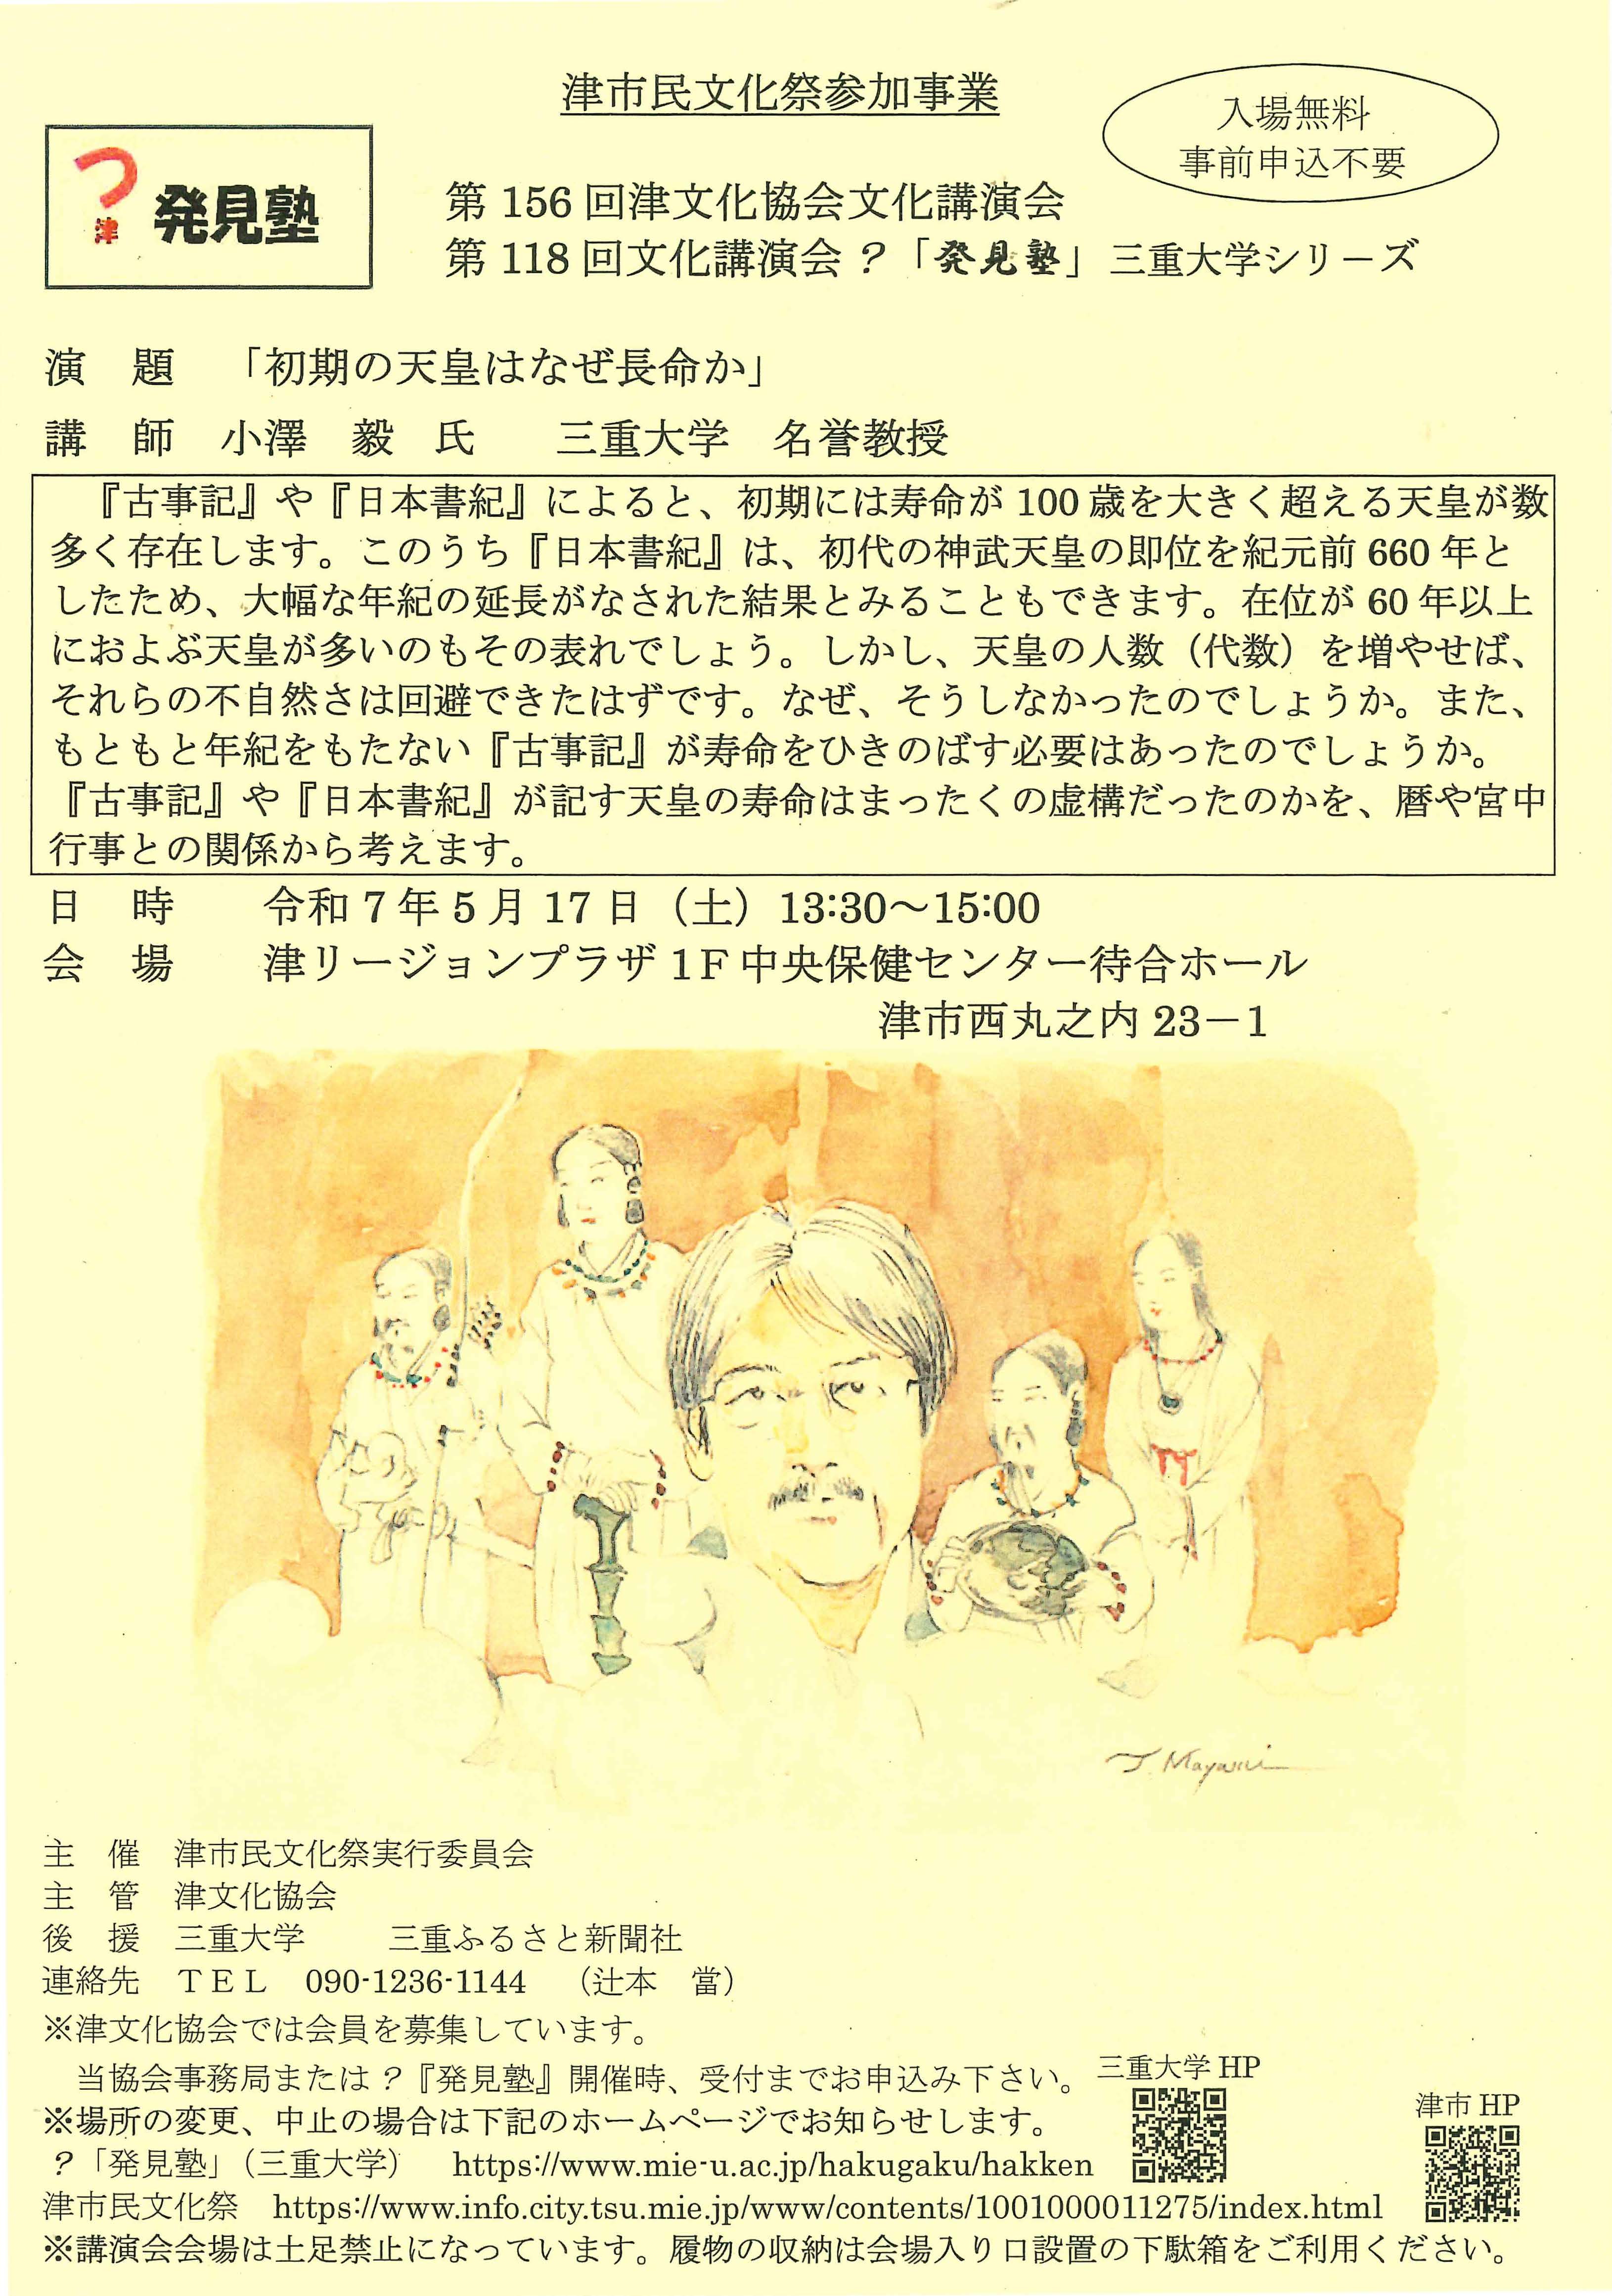 津市民文化祭参加事業
入場無料
事前申込不要
つ
津
発見塾
第156回津文化協会文化講演会
第118回文化講演会?「発見塾」三重大学シリーズ
演 題 「初期の天皇はなぜ長命か」
講 師 小澤 毅 氏 三重大学 名誉教授
『古事記』や『日本書紀』によると、初期には寿命が100歳を大きく超える天皇が数
多く存在します。このうち『日本書紀』は、初代の神武天皇の即位を紀元前660年と
したため、大幅な年紀の延長がなされた結果とみることもできます。在位が60年以上
におよぶ天皇が多いのもその表れでしょう。しかし、天皇の人数（代数）を増やせば、
それらの不自然さは回避できたはずです。なぜ、そうしなかったのでしょうか。また、
もともと年紀をもたない『古事記』が寿命をひきのばす必要はあったのでしょうか。
『古事記』や『日本書紀』が記す天皇の寿命はまったくの虚構だったのかを、暦や宮中
行事との関係から考えます。
日 時 令和7年5月17日（土）13:30～15:00
会 場 津リージョンプラザ1F中央保健センター待合ホール
津市西丸之内23－1
主 催 津市民文化祭実行委員会
主 管 津文化協会
後 援 三重大学 三重ふるさと新聞社
連絡先 ＴＥＬ 090-1236-1144 （辻本 當）
※津文化協会では会員を募集しています。
当協会事務局または?『発見塾』開催時、受付までお申込み下さい。
三重大学HP
※場所の変更、中止の場合は下記のホームページでお知らせします。
津市HP
?「発見塾」（三重大学） https://www.mie-u.ac.jp/hakugaku/hakken
津市民文化祭 https://www.info.city.tsu.mie.jp/www/contents/1001000011275/index.html
※講演会会場は土足禁止になっています。履物の収納は会場入り口設置の下駄箱をご利用ください。